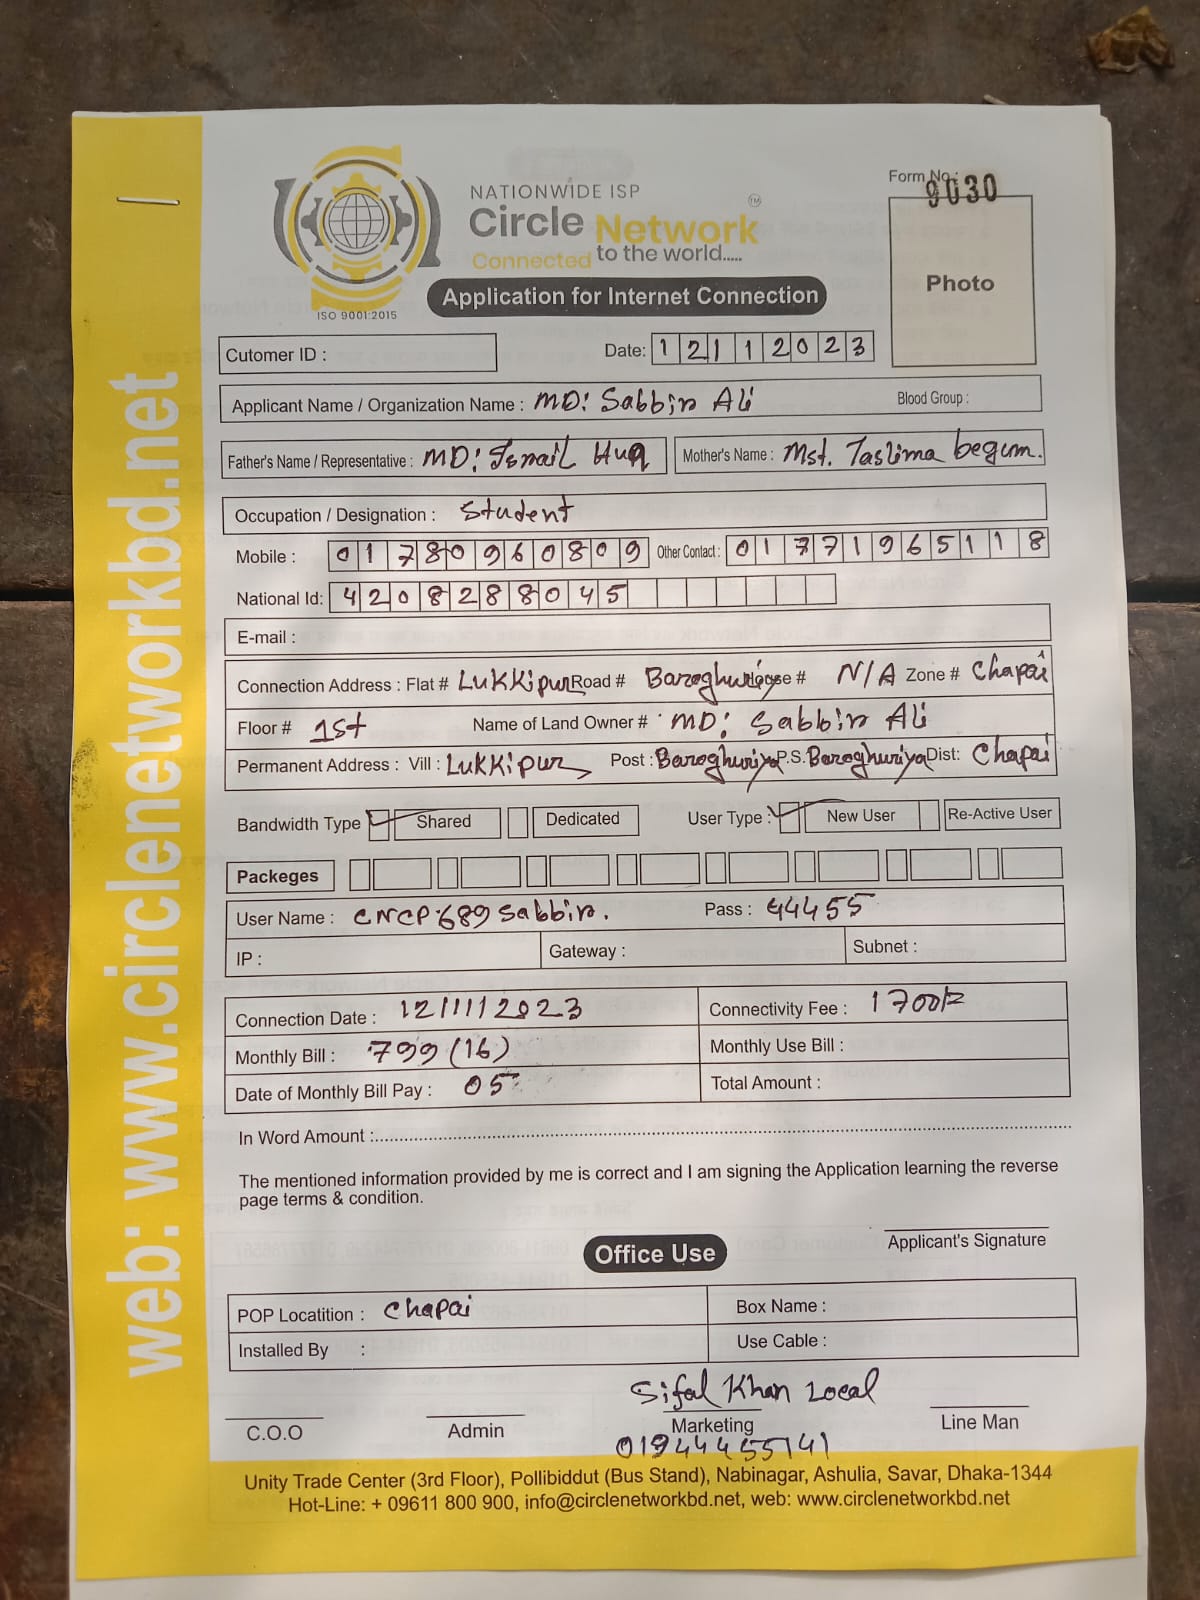 web: www.circlenetworkbd.net
NATIONWIDE ISP
Circle Network TM
Connected to the world.....
ISO 9001:2015
Application for Internet Connection
Form No.: 9030
Photo
Cutomer ID :
Date: 12112023
Applicant Name / Organization Name : MD: Sabbir Ali Blood Group :
Father's Name / Representative : MD: Ismail Huq Mother's Name : Mst. Taslima begum.
Occupation / Designation : Student
Mobile : 01780960809 Other Contact : 01771965118
National Id: 4208288045
E-mail :
Connection Address : Flat # Lukkipur Road # Baroghuriya House # N/A Zone # Chapai
Floor # 1st Name of Land Owner # MD: Sabbir Ali
Permanent Address : Vill : Lukkipur Post : Baroghuriya P.S. Baroghuriya Dist: Chapai
Bandwidth Type Shared Dedicated User Type : New User Re-Active User
Packeges
User Name : CNCP:689sabbir. Pass : 44455
IP : Gateway : Subnet :
Connection Date : 12/11/2023 Connectivity Fee : 1700/=
Monthly Bill : 799 (16) Monthly Use Bill :
Date of Monthly Bill Pay : 05 Total Amount :
In Word Amount :
The mentioned information provided by me is correct and I am signing the Application learning the reverse
page terms & condition.
Applicant's Signature
Office Use
POP Locatition : Chapai Box Name :
Installed By : Use Cable :
Sifal Khan Local
C.O.O Admin Marketing Line Man
01944455141
Unity Trade Center (3rd Floor), Pollibiddut (Bus Stand), Nabinagar, Ashulia, Savar, Dhaka-1344
Hot-Line: + 09611 800 900, info@circlenetworkbd.net, web: www.circlenetworkbd.net